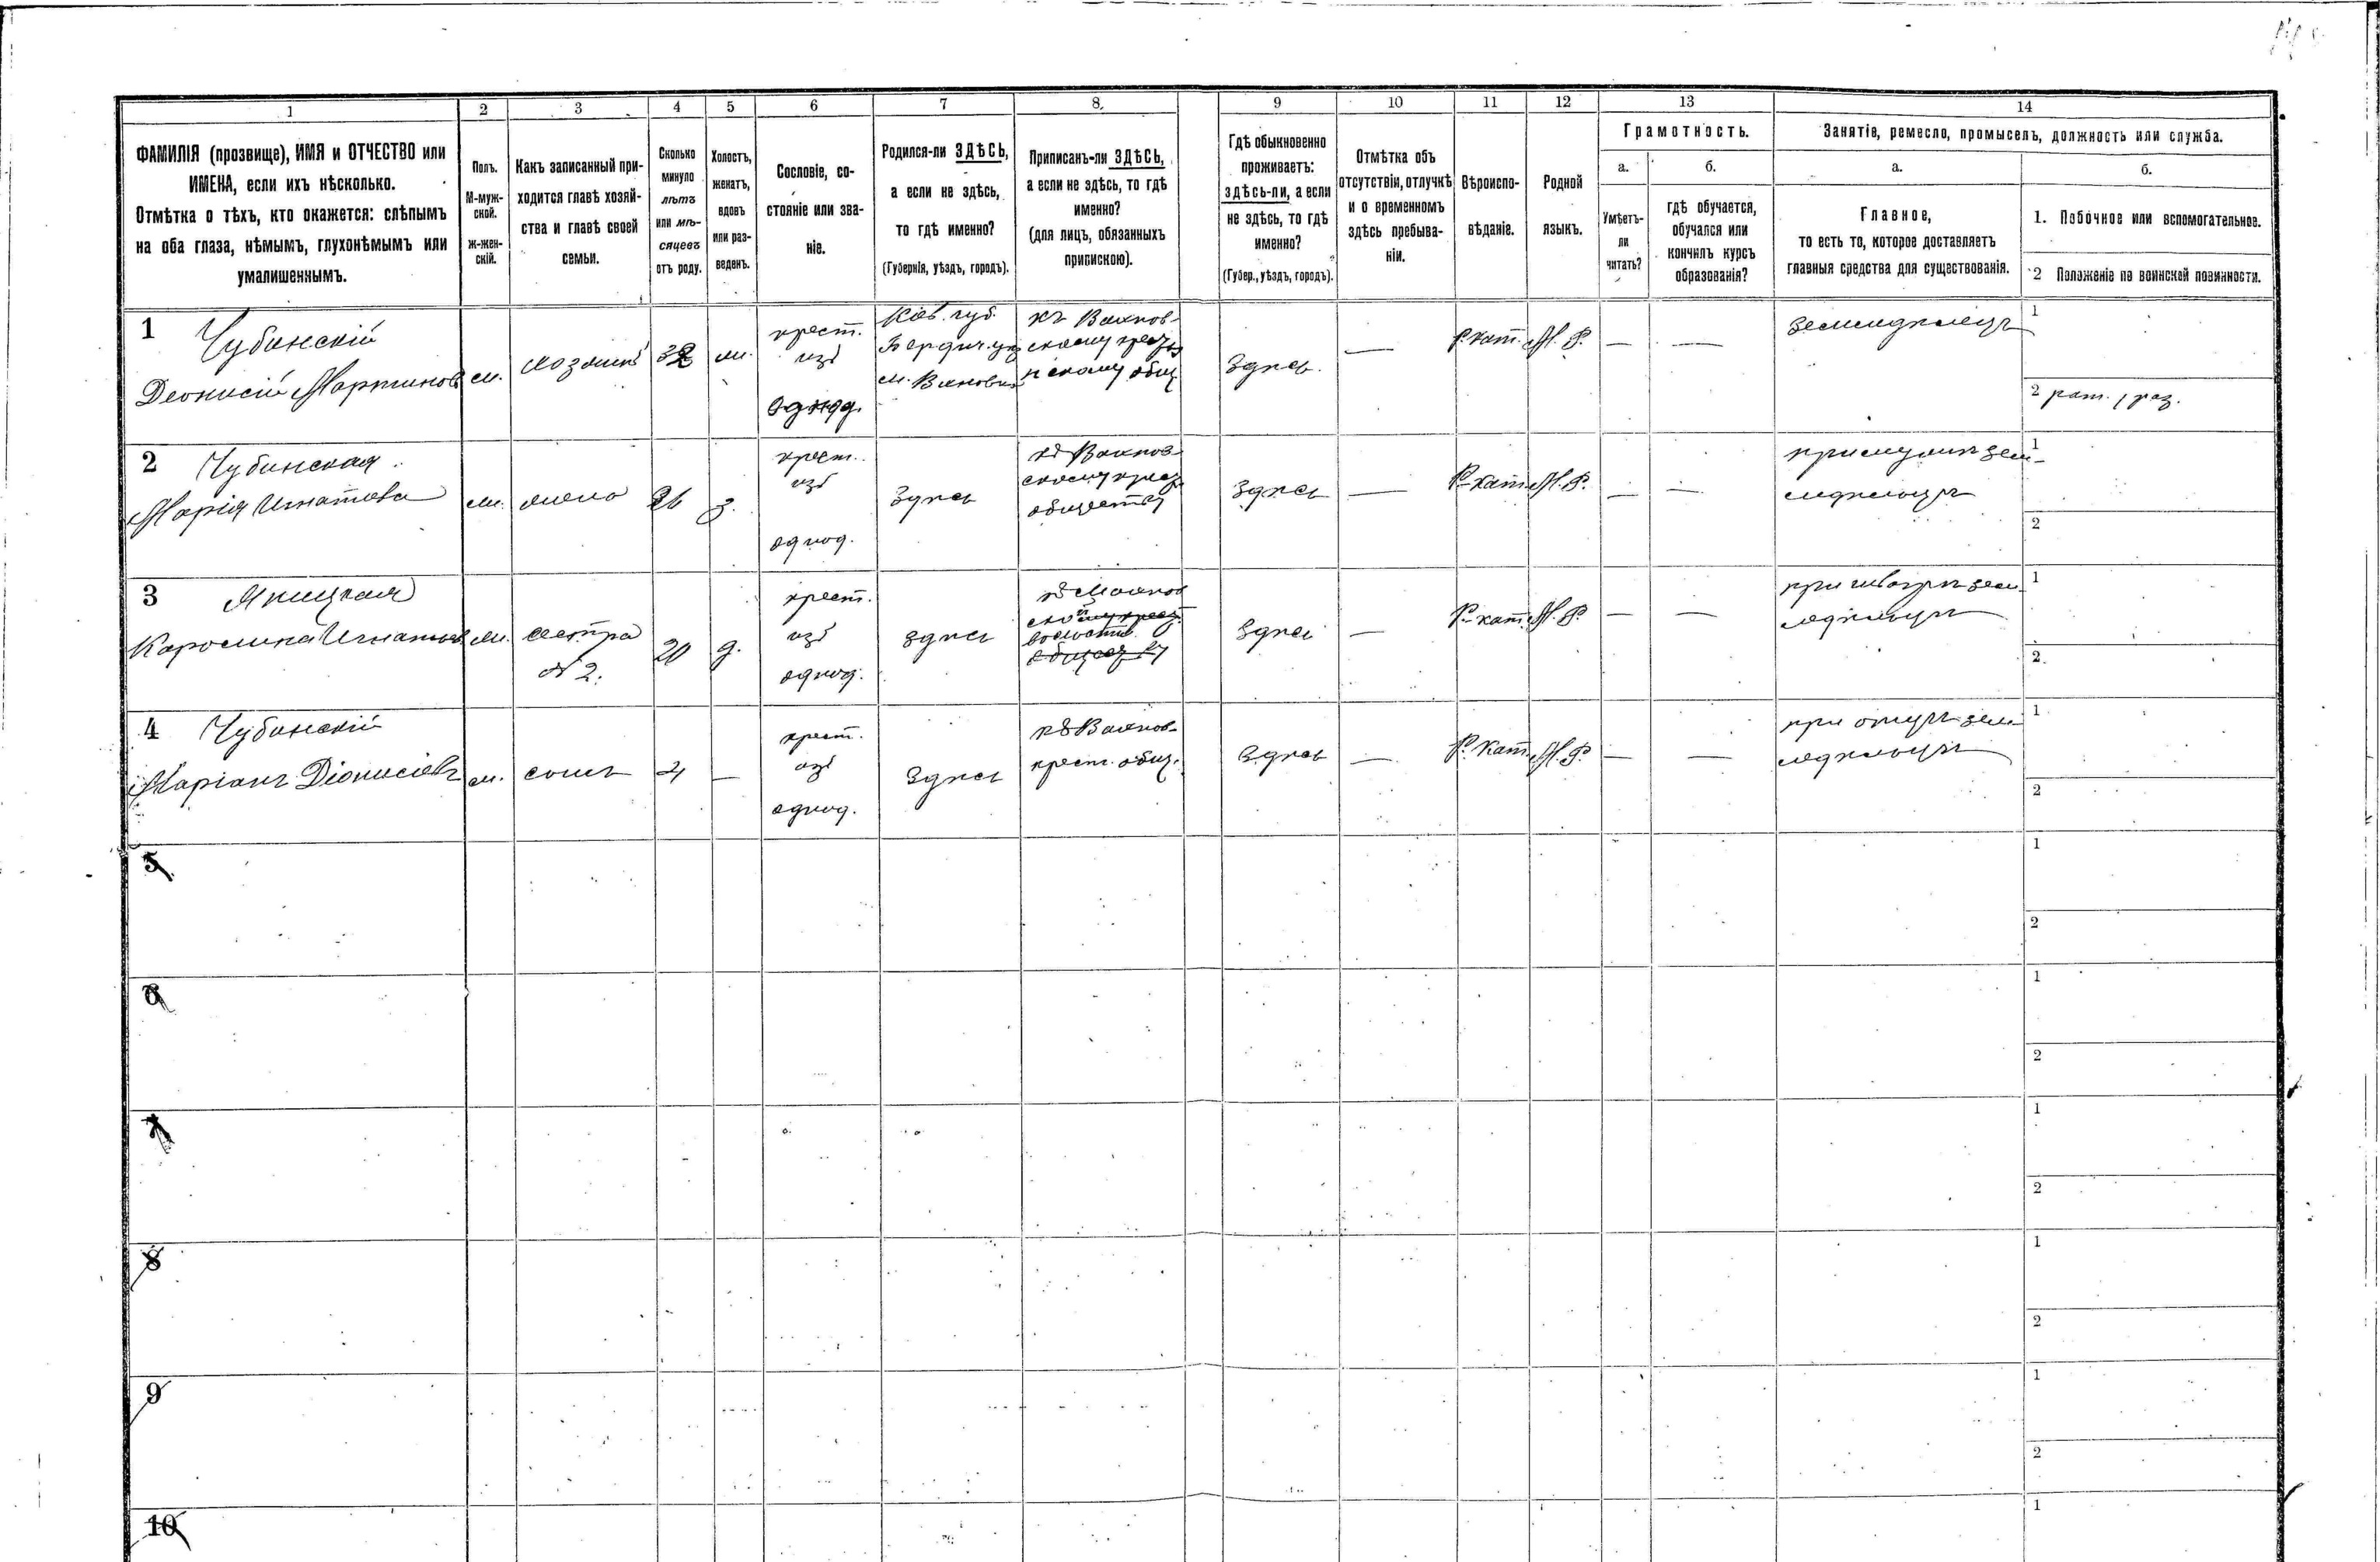 1 2 3 4 5 6 7 8. 9 10 11 12 13 14
ФАМИЛІЯ (прозвище), ИМЯ и ОТЧЕСТВО или
ИМЕНА, если ихъ нѣсколько.
Отмѣтка о тѣхъ, кто окажется: слѣпымъ
на оба глаза, нѣмымъ, глухонѣмымъ или
умалишеннымъ.
Полъ.
М-муж-
ской.
ж-жен-
скій.
Какъ записанный при-
ходится главѣ хозяй-
ства и главѣ своей
семьи.
Сколько
минуло
лѣтъ
или мѣ-
сяцевъ
отъ роду.
Холостъ,
женатъ,
вдовъ
или раз-
веденъ.
Сословіе, со-
стояніе или зва-
ніе.
Родился-ли ЗДѢСЬ,
а если не здѣсь,
то гдѣ именно?
(Губернія, уѣздъ, городъ).
Приписанъ-ли ЗДѢСЬ,
а если не здѣсь, то гдѣ
именно?
(для лицъ, обязанныхъ
припискою).
Гдѣ обыкновенно
проживаетъ:
здѣсь-ли, а если
не здѣсь, то гдѣ
именно?
(Губер., уѣздъ, городъ).
Отмѣтка объ
отсутствіи, отлучкѣ
и о временномъ
здѣсь пребыва-
ніи.
Вѣроиспо-
вѣданіе.
Родной
языкъ.
Грамотность.
а.
Умѣетъ-
ли
читать?
б.
гдѣ обучается,
обучался или
кончилъ курсъ
образованія?
Занятіе, ремесло, промыселъ, должность или служба.
а.
Главное,
то есть то, которое доставляетъ
главныя средства для существованія.
б.
1. Побочное или вспомогательное.
2 Положеніе по воинской повинности.
1 Чубинскій
Деонисій Мартиновъ
м.
хозяинъ
32
крест.
изъ
однод.
Кіев. губ.
Бердич. уѣз
къ Вахнов-
скому
общ
здѣсь.
—
Р. кат.
М. Р.
—
—
земледѣлецъ
1
2 рат. 1 раз.
2 Чубинская
Марія Игнатова
жена
26
з.
крест.
изъ
однод.
здѣсь
къ Вахнов-
скому крес.
обществу
здѣсь
—
Р. кат.
М. Р.
—
—
при мужѣ зем-
ледѣльцѣ
1
2
3
Каролина Игнатьев
сестра
№ 2.
20
д.
крест.
изъ
однод.
здѣсь
здѣсь
—
Р. кат.
М. Р.
—
—
зем-
ледѣльцѣ
1
2.
4 Чубинскій
Маріанъ Діонисіевъ
м.
сынъ
4
—
крест.
изъ
однод.
здѣсь
къ Вахнов-
крест. общ.
здѣсь
—
Р. кат.
М. Р.
—
—
при отцѣ зем-
ледѣльцѣ
1
2
5
1
2
6
1
2
7
1
2
8
1
2
9
1
2
10
1